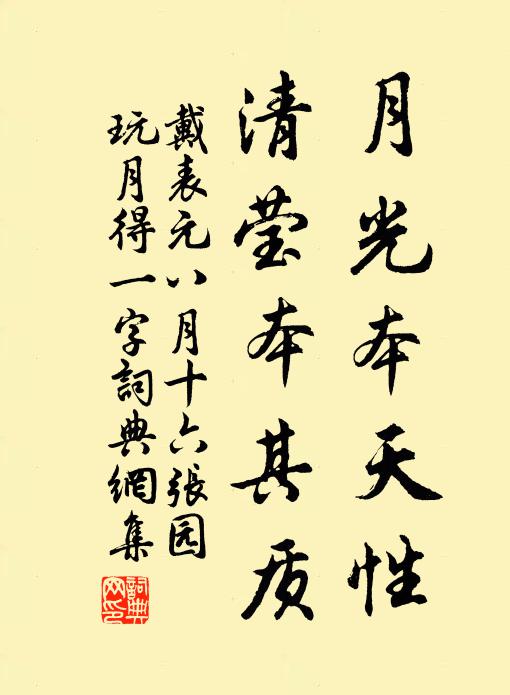 月光本天性
清莹本其质
戴表元八月十六張园
玩月得一字詞典網集
詞典網印